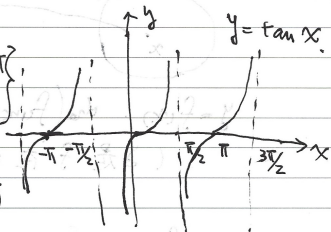 y
y = tan x.
-π -π/2 π/2 π 3π/2 x